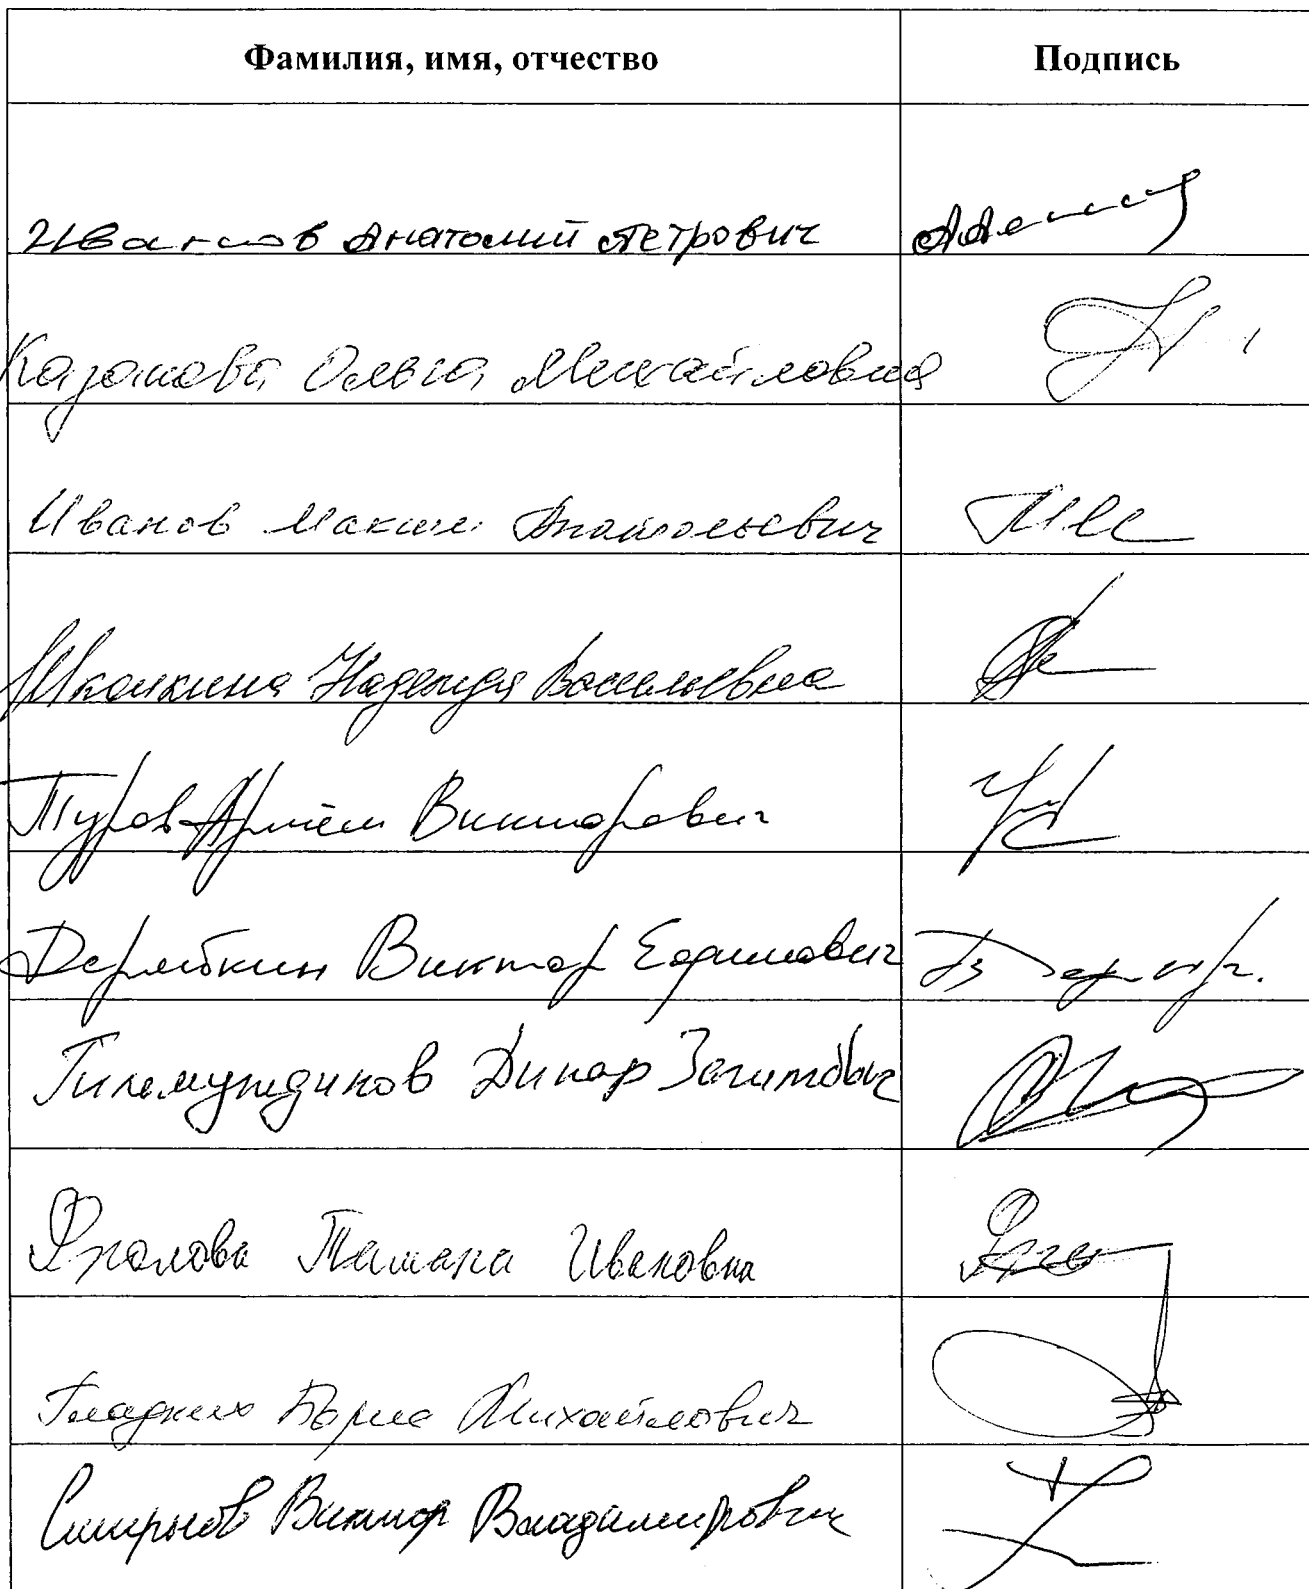 Фамилия, имя, отчество Подпись
Иванов Анатолий Петрович
Казакова Ольга Михайловна
Иванов Максим Анатольевич
Школкина Надежда Васильевна
Туров Артём Викторович
Дерябкин Виктор Ефимович
Гилемутдинов Динар Загитович
Фролова Татьяна Ивановна
Гладких Борис Михайлович
Смирнов Виктор Владимирович